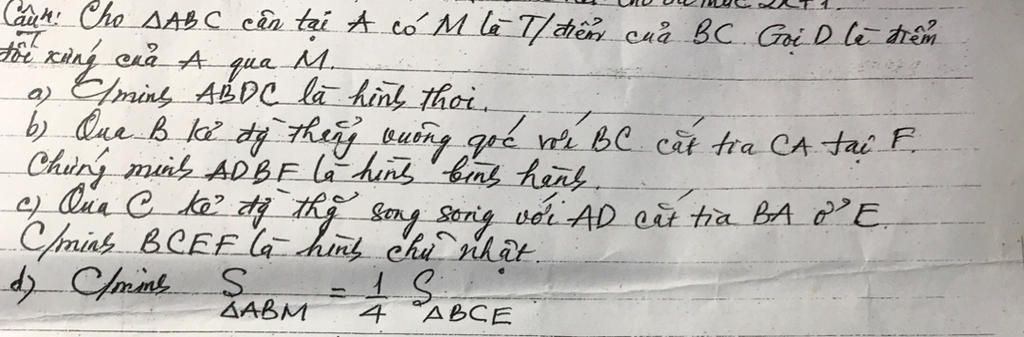 Câu 4: Cho ΔABC cân tại A có M là T/điểm của BC Gọi D là điểm
đối xứng của A qua M.
a) C/minh ABDC là hình thoi.
b) Qua B kẻ đg thẳng vuông góc với BC cắt tia CA tại F.
Chứng minh ADBF là hình bình hành.
c) Qua C kẻ đg thg song song với AD cắt tia BA ở E.
C/minh BCEF là hình chữ nhật.
d) C/minh S ΔABM = 1/4 S ΔBCE